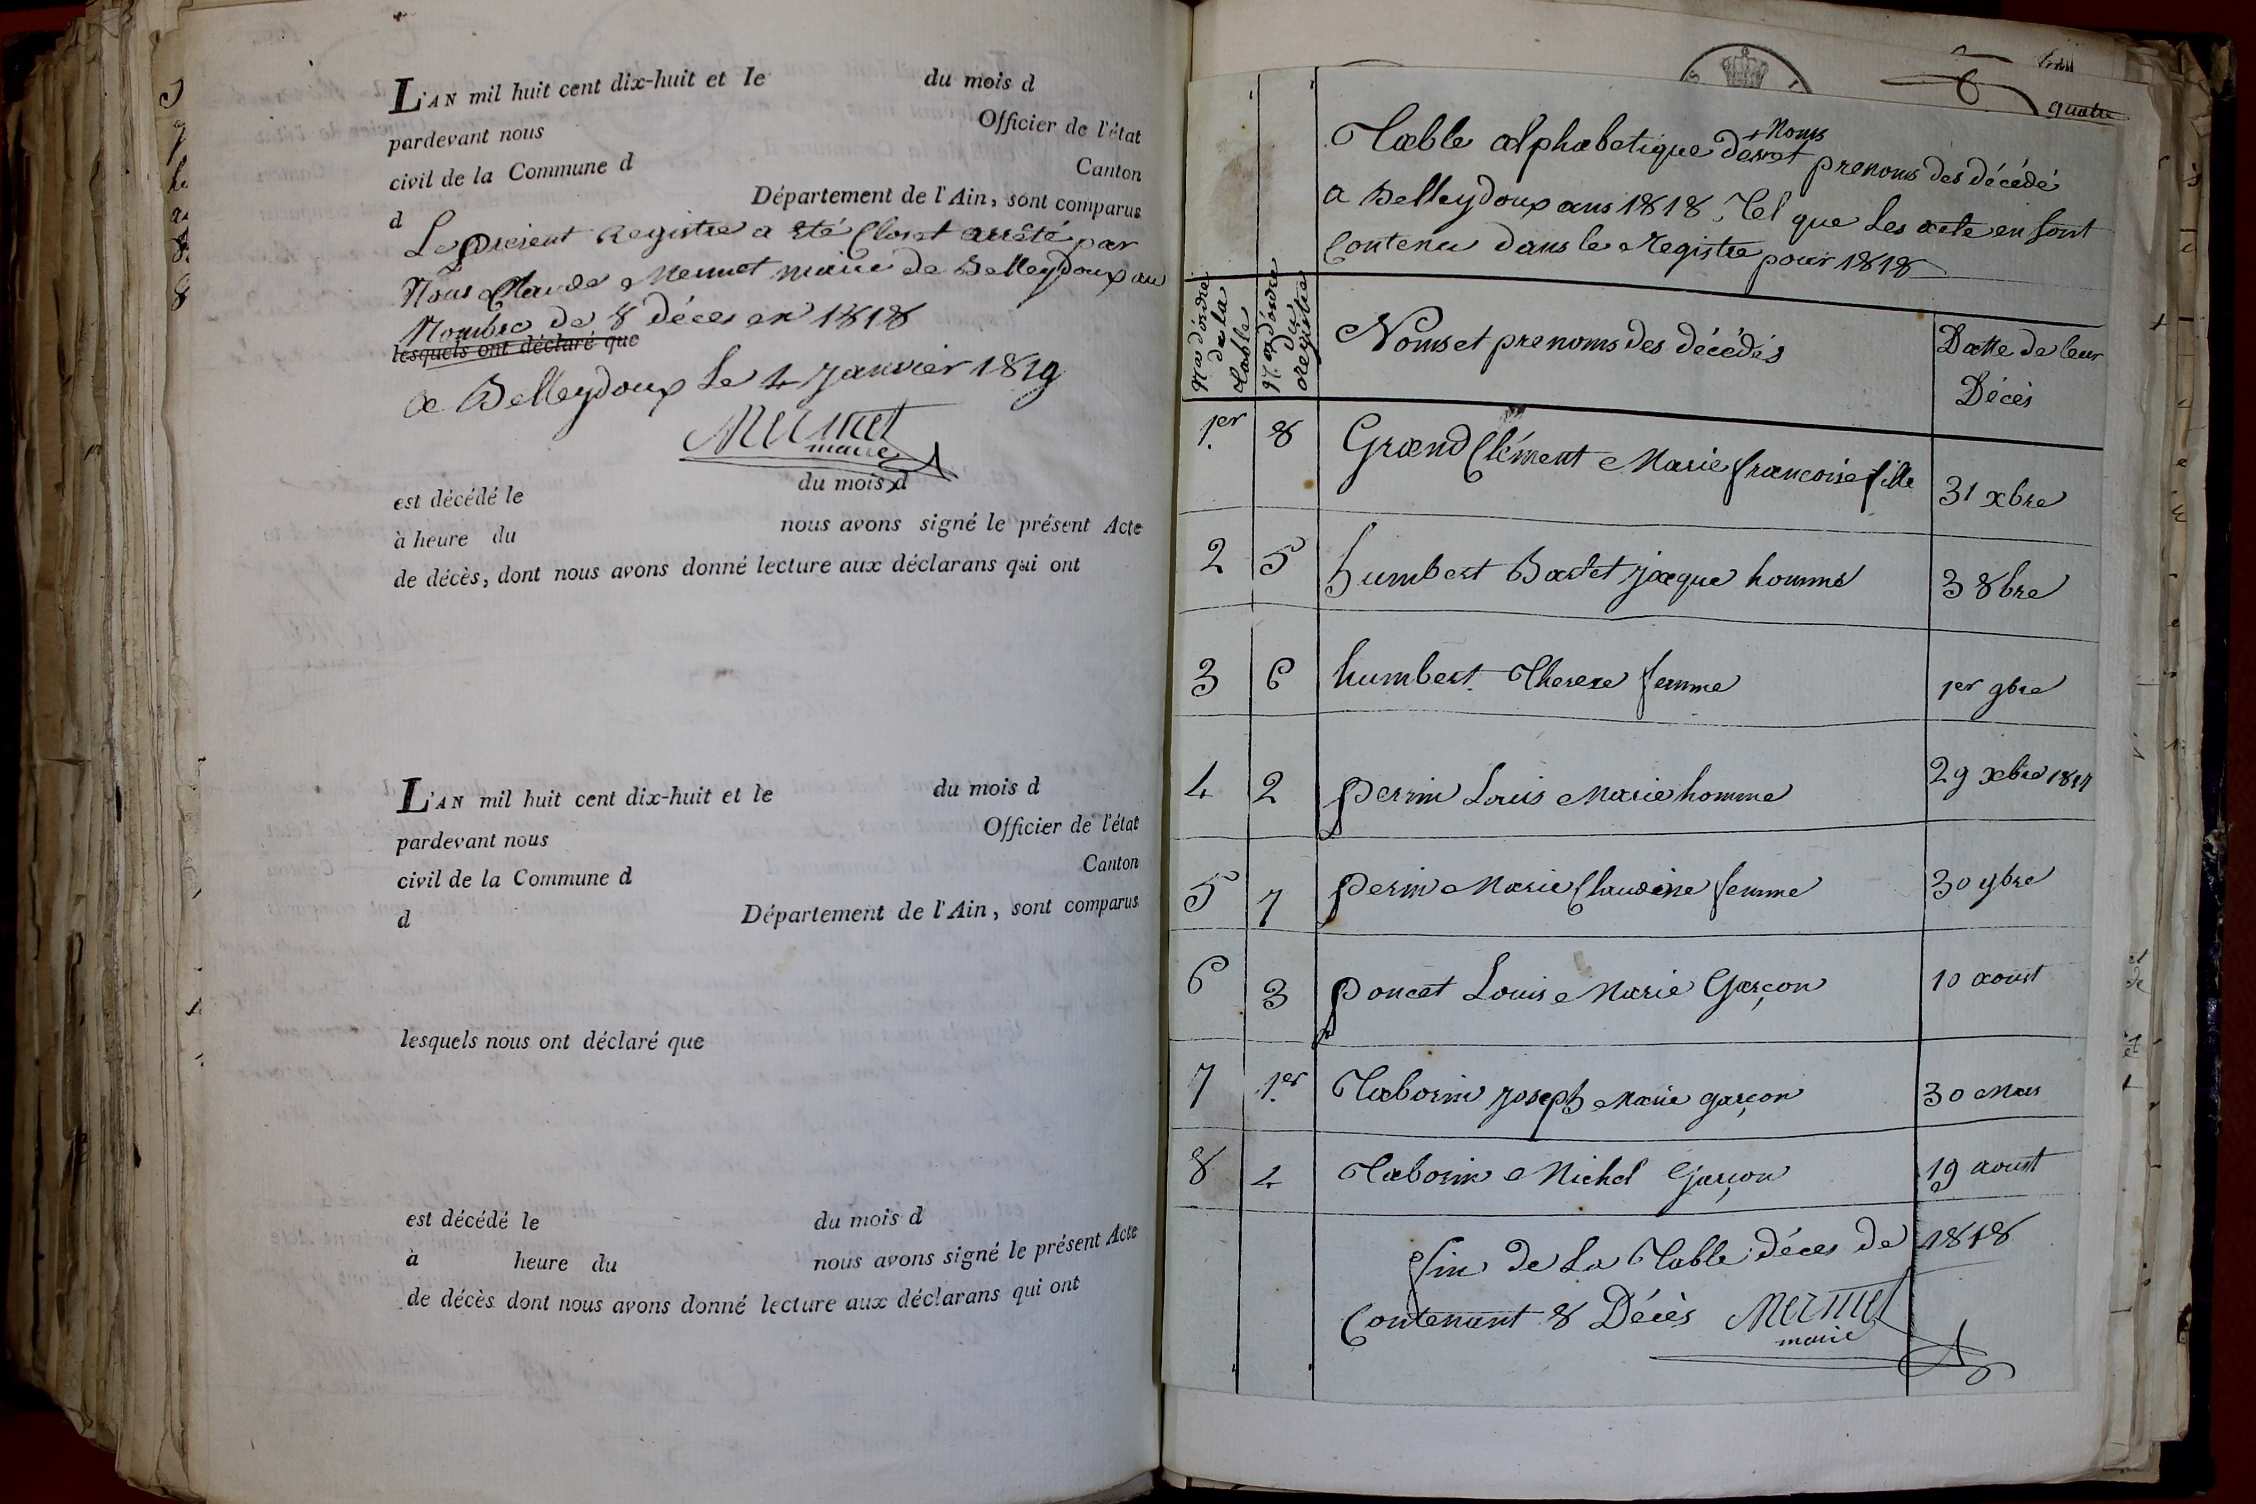 L'AN mil huit cent dix-huit et le du mois d
pardevant nous Officier de l'état
civil de la Commune d Canton
d Département de l'Ain, sont comparus
Le present Registre a été Clos et arrêté par
Nous Claude Mermet maire de Belleydoux au
Nombre de 8 déces en 1818
lesquels ont déclaré que
a Belleydoux Le 4 Janvier 1819
Mermet
maire
est décédé le du mois d
à heure du nous avons signé le présent Acte
de décès, dont nous avons donné lecture aux déclarans qui ont
L'AN mil huit cent dix-huit et le du mois d
pardevant nous Officier de l'état
civil de la Commune d Canton
d Département de l'Ain, sont comparus
lesquels nous ont déclaré que
est décédé le du mois d
à heure du nous avons signé le présent Acte
de décès dont nous avons donné lecture aux déclarans qui ont
quatre
Table alphabetique des Noms et prenoms des décédé
a Belleydoux ans 1818. Tel que Les acte en sont
Contenu dans le Registre pour 1818
Nos d'ordre de la Table
Nos d'ordre du registre
Noms et prenoms des décédés
Datte de leur Décès
1er 8 Grand Clément Marie francoise fille 31 xbre
2 5 humbert Bastet jaque homme 3 8bre
3 6 humbert Therese femme 1er 9bre
4 2 perrin Louis Marie homme 29 xbre 1817
5 7 perin Marie Claudine femme 30 9bre
6 3 poncet Louis Marie Garçon 10 aoust
7 1er Taborin joseph Marie garçon 30 Mars
8 4 Taborin Michel Garçon 19 aoust
fin de La Table déces de 1818
Contenant 8 Décès Mermet
maire